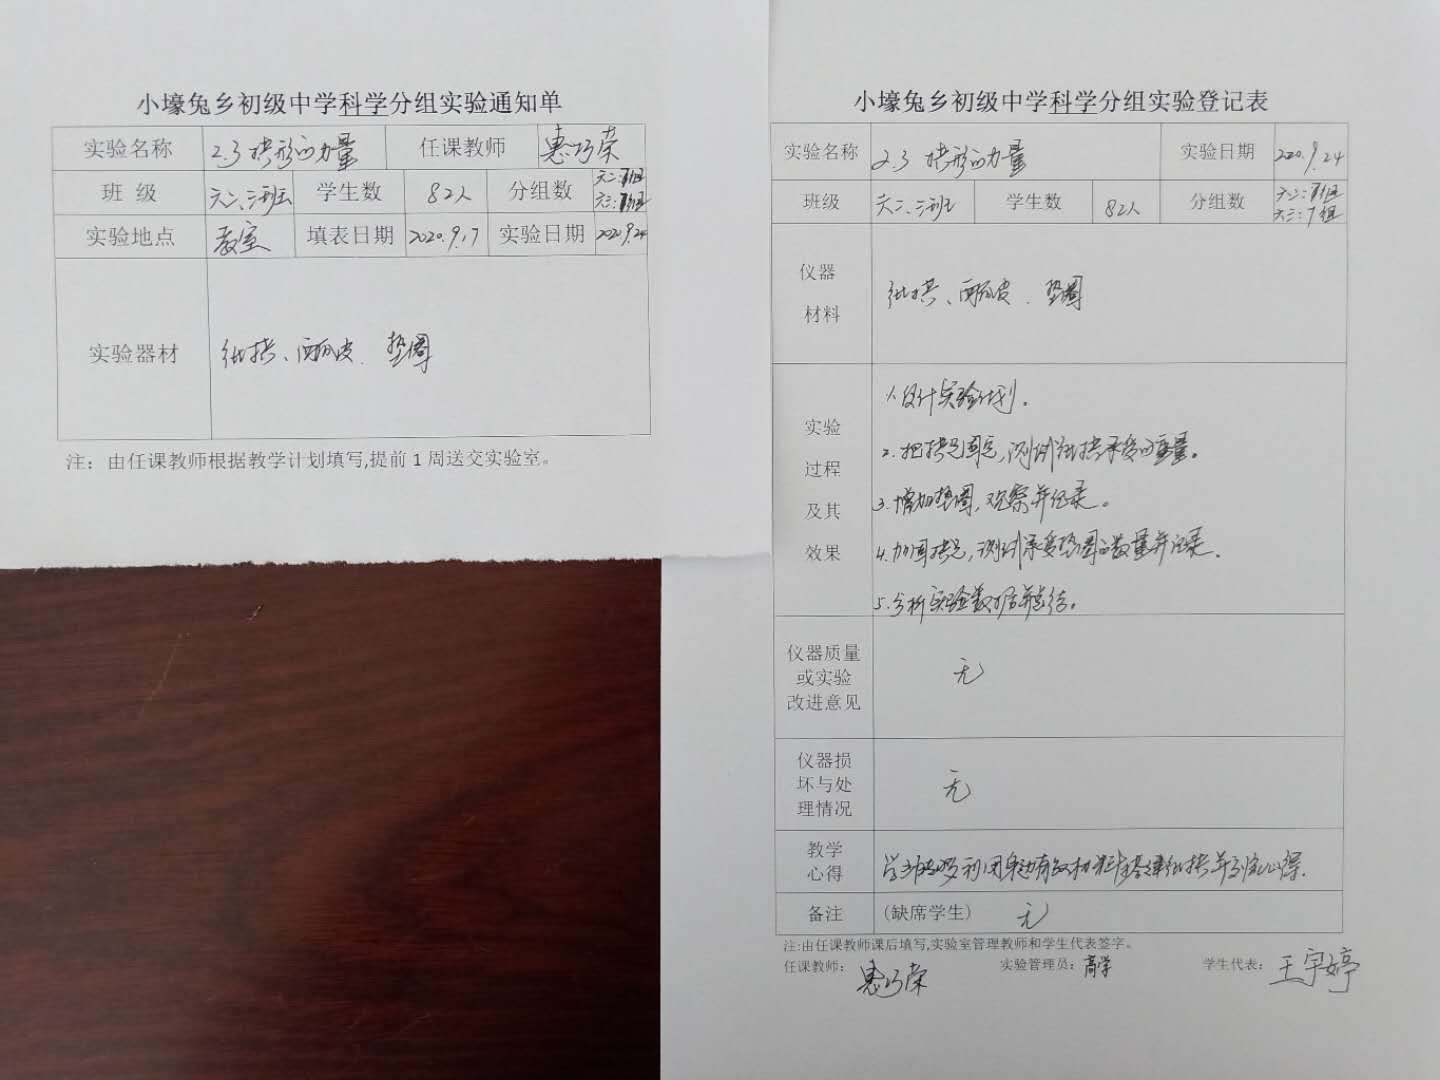 小壕兔乡初级中学科学分组实验通知单
实验名称 2.3 拱形的力量 任课教师 惠巧荣
班 级 六二、三班 学生数 82人 分组数 六二:7组
六三:7组
实验地点 教室 填表日期 2020.9.17 实验日期 2020.9.24
实验器材 纸拱、西瓜皮、垫圈
注：由任课教师根据教学计划填写,提前 1 周送交实验室。
小壕兔乡初级中学科学分组实验登记表
实验名称 2.3 拱形的力量 实验日期 2020.9.24
班级 六二、三班 学生数 82人 分组数 六二:7组
六三:7组
仪器
材料
纸拱、西瓜皮、垫圈
实验
过程
及其
效果
1.设计实验计划。
2.把拱足固定,测试纸拱承受的重量。
3.增加垫圈,观察并记录。
4.加固拱足,测试承受垫圈的数量并记录。
5.分析实验数据并总结。
仪器质量
或实验
改进意见
无
仪器损
坏与处
理情况
无
教学
心得
学生能够利用身边有效材料搭建纸拱并
备注 (缺席学生) 无
注:由任课教师课后填写,实验室管理教师和学生代表签字。
任课教师: 惠巧荣 实验管理员: 高学 学生代表: 王宇婷